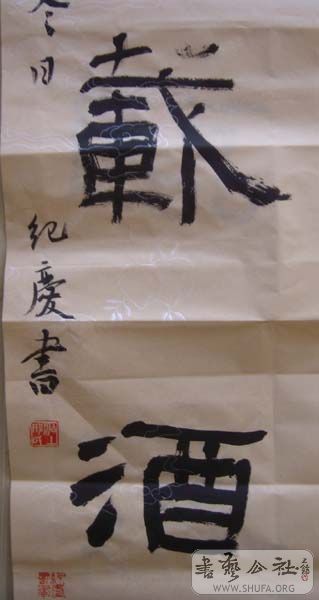 載酒
今日
紀慶書
書藝公社
WWW.SHUFA.ORG